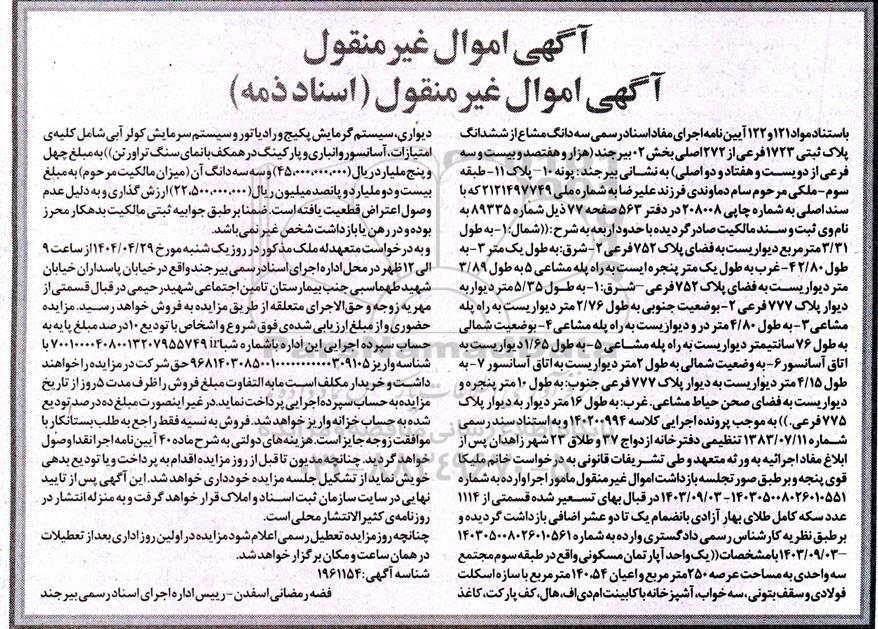 آگهی اموال غیر منقول
آگهی اموال غیر منقول (اسناد ذمه)
باستناد مواد ۱۲۱ و ۱۲۲ آیین نامه اجرای مفاد اسناد رسمی سه دانگ مشاع از ششدانگ
پلاک ثبتی ۱۷۲۳ فرعی از ۲۷۲ اصلی بخش ۰۲ بیرجند (هزار و هفتصد و بیست و سه
فرعی از دویست و هفتاد و دو اصلی) به نشانی بیرجند: پونه ۱۰- پلاک ۱۱- طبقه
سوم- ملکی مرحوم سام دماوندی فرزند علیرضا به شماره ملی ۲۱۲۱۴۹۷۷۴۹ که با
سند اصلی به شماره چاپی ۲۰۸۰۰۸ در دفتر ۵۶۳ صفحه ۷۷ ذیل شماره ۸۹۳۳۵ به
نام وی ثبت و سند مالکیت صادر گردیده با حدود اربعه به شرح: ((شمال: ۱- به طول
۳/۳۱ متر مربع دیواریست به فضای پلاک ۷۵۲ فرعی ۲- شرق: به طول یک متر ۳- به
طول ۲/۸۰ ۴- غرب به طول یک متر پنجره ایست به راه پله مشاعی ۵ به طول ۳/۸۹
متر دیواریست به فضای پلاک ۷۵۲ فرعی - شرق: ۱- به طول ۵/۳۵ متر دیوار به
دیوار پلاک ۷۷۷ فرعی ۲- بوضعیت جنوبی به طول ۲/۷۶ متر دیواریست به راه پله
مشاعی ۳- به طول ۴/۸۰ متر در و دیوازیست به راه پله مشاعی ۴- بوضعیت شمالی
به طول ۷۶ سانتیمتر دیواریست به راه پله مشاعی ۵- به طول ۱/۶۵ دیواریست به
اتاق آسانسور ۶- به وضعیت شمالی به طول ۲ متر دیواریست به اتاق آسانسور ۷- به
طول ۴/۱۵ متر دیواریست به دیوار پلاک ۷۷۷ فرعی جنوب: به طول ۱۰ متر پنجره و
دیواریست به فضای صحن حیاط مشاعی. غرب: به طول ۱۶ متر دیوار به دیوار پلاک
۷۷۵ فرعی.)) به موجب پرونده اجرایی کلاسه ۱۴۰۲۰۰۹۹۴ و به استناد سند رسمی
شماره ۱۱/۰۷/۱۳۸۳ تنظیمی دفترخانه ازدواج ۳۷ و طلاق ۲۳ شهر زاهدان پس از
ابلاغ مفاد اجرائیه به ورثه متعهد و طی تشریفات قانونی به درخواست خانم ملیکا
قوی پنجه و بر طبق صور تجلسه بازداشت اموال غیر منقول مامور اجرا وارده به شماره
۱۴۰۳۰۵۰۰۸۰۲۶۰۱۰۵۵۱-۱۴۰۳/۰۹/۰۳ در قبال بهای تسعیر شده قسمتی از ۱۱۱۴
عدد سکه کامل طلای بهار آزادی بانضمام یک تا دو عشر اضافی بازداشت گردیده و
بر طبق نظریه کارشناس رسمی دادگستری وارده به شماره ۱۴۰۳۰۵۰۰۸۰۲۶۰۱۰۵۶۱
-۱۴۰۳/۰۹/۰۳ با مشخصات ((یک واحد آپارتمان مسکونی واقع در طبقه سوم مجتمع
سه واحدی به مساحت عرصه ۲۵۰ متر مربع و اعیان ۱۴۰.۵۴ متر مربع با سازه اسکلت
فولادی و سقف بتونی، سه خواب، آشپزخانه با کابینت ام دی اف، هال، کف پارکت، کاغذ
دیواری، سیستم گرمایش پکیج و رادیاتور و سیستم سرمایش کولر آبی شامل کلیه ی
امتیازات، آسانسور و انباری و پارکینگ در همکف با نمای سنگ تراورتن)) به مبلغ چهل
و پنج ملیارد ریال (۴۵,۰۰۰,۰۰۰,۰۰۰) و سه سه دانگ آن (میزان مالکیت مرحوم) به مبلغ
بیست و دو ملیارد و پانصد میلیون ریال (۲۲,۵۰۰,۰۰۰,۰۰۰) ارزش گذاری و به دلیل عدم
وصول اعتراض قطعیت یافته است. ضمنا بر طبق جوابیه ثبتی مالکیت بدهکار محرز
بوده و در رهن یا بازداشت شخص غیر نمی باشد.
و به درخواست متعهدله ملک مذکور در روز یک شنبه مورخ ۱۴۰۴/۰۴/۲۹ از ساعت ۹
الی ۱۲ ظهر در محل اداره اجرای اسناد رسمی بیرجند واقع در خیابان پاسداران خیابان
شهید طهماسبی جنب بیمارستان تامین اجتماعی شهید رحیمی در قبال قسمتی از
مهریه زوجه و حق الاجرای متعلقه از طریق مزایده به فروش خواهد رسید. مزایده
حضوری و از مبلغ ارزیابی شده ی فوق شروع و اشخاص با تودیع ۱۰ درصد مبلغ پایه به
حساب سپرده اجرایی این اداره با شماره شبا ir۷۰۰۱۰۰۰۰۴۰۸۰۰۱۳۲۰۷۹۵۵۷۴۹ با
شناسه واریز ۹۶۸۱۴۰۳۰۸۵۰۰۱۰۰۰۰۰۰۰۰۰۰۳۰۹۱۰۵ حق شرکت در مزایده را خواهند
داشت و خریدار مکلف است مابه التفاوت مبلغ فروش را ظرف مدت ۵ روز از تاریخ
مزایده به حساب سپرده اجرایی پرداخت نماید. در غیر اینصورت مبلغ ده درصد تودیع
شده به حساب خزانه واریز خواهد شد. فروش به نسیه فقط راجع به طلب بستانکار با
موافقت زوجه جایز است. هزینه های دولتی به شرح ماده ۴۰ آیین نامه اجرا نقدا وصول
خواهد گردید. چنانچه مدیون تا قبل از روز مزایده اقدام به پرداخت و یا تودیع بدهی
خویش نماید از تشکیل جلسه مزایده خودداری خواهد شد. این آگهی پس از تایید
نهایی در سایت سازمان ثبت اسناد و املاک قرار خواهد گرفت و به منزله انتشار در
روزنامه ی کثیر الانتشار محلی است.
چنانچه روز مزایده تعطیل رسمی اعلام شود مزایده در اولین روز اداری بعد از تعطیلات
در همان ساعت و مکان برگزار خواهد شد.
شناسه آگهی: ۱۹۶۱۱۵۴
فضه رمضانی اسفدن- رییس اداره اجرای اسناد رسمی بیرجند
ParsNamadData
۰۲۱-۸۸۳۴۹۶۷۰-۵